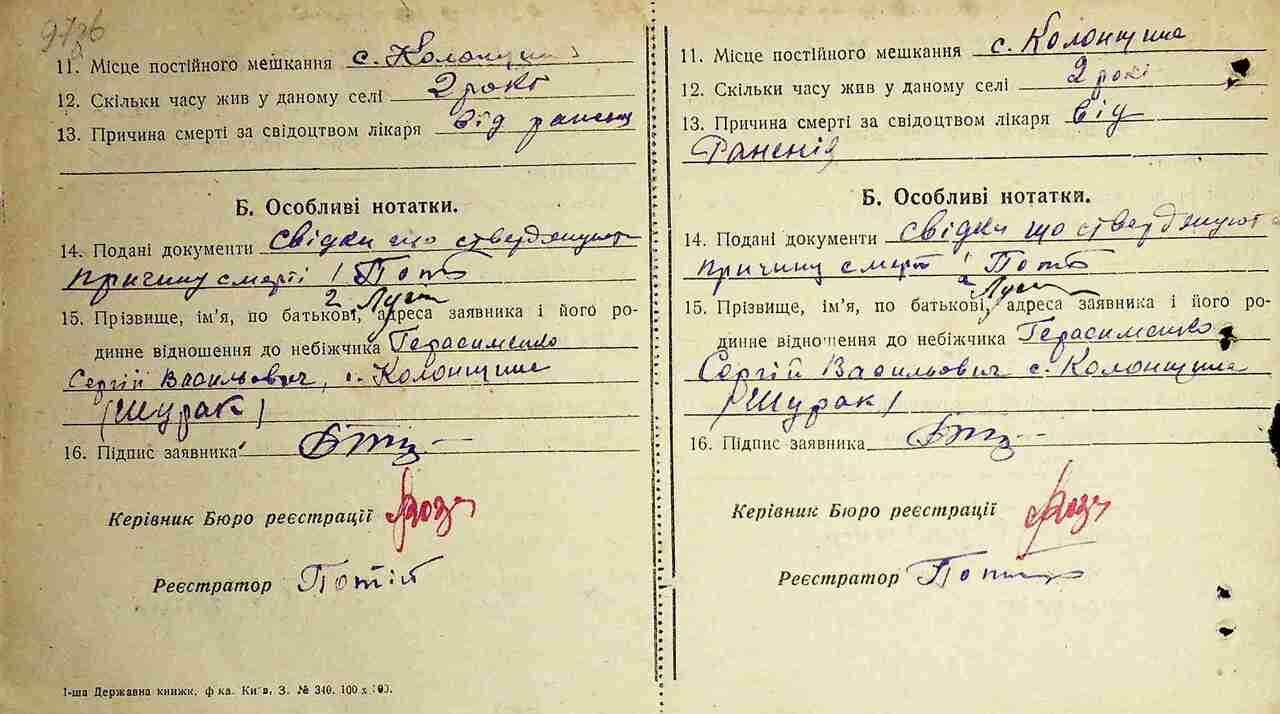 9726
11. Місце постійного мешкання с. Колонщина
12. Скільки часу жив у даному селі 2 рокі
13. Причина смерті за свідоцтвом лікаря від
Б. Особливі нотатки.
14. Подані документи свідки що стверджуют
причину смерті 1 Потб
2
15. Прізвище, ім'я, по батькові, адреса заявника і його ро-
динне відношення до небіжчика Герасименко
Сергій Васильович, с. Колонщина
(Шурак)
16. Підпис заявника
Керівник Бюро реєстрації
Реєстратор Потій
1-ша Державна книжк. ф-ка. Київ. З. № 340. 100 x 100.
11. Місце постійного мешкання с. Колонщина
12. Скільки часу жив у даному селі 2 рокі
13. Причина смерті за свідоцтвом лікаря від
Раненія
Б. Особливі нотатки.
14. Подані документи свідки що стверджуют
причину смерт 1 Потб
2
15. Прізвище, ім'я, по батькові, адреса заявника і його ро-
динне відношення до небіжчика Герасименко
Сергій Васильович с. Колонщина
(Шурак)
16. Підпис заявника
Керівник Бюро реєстрації
Реєстратор